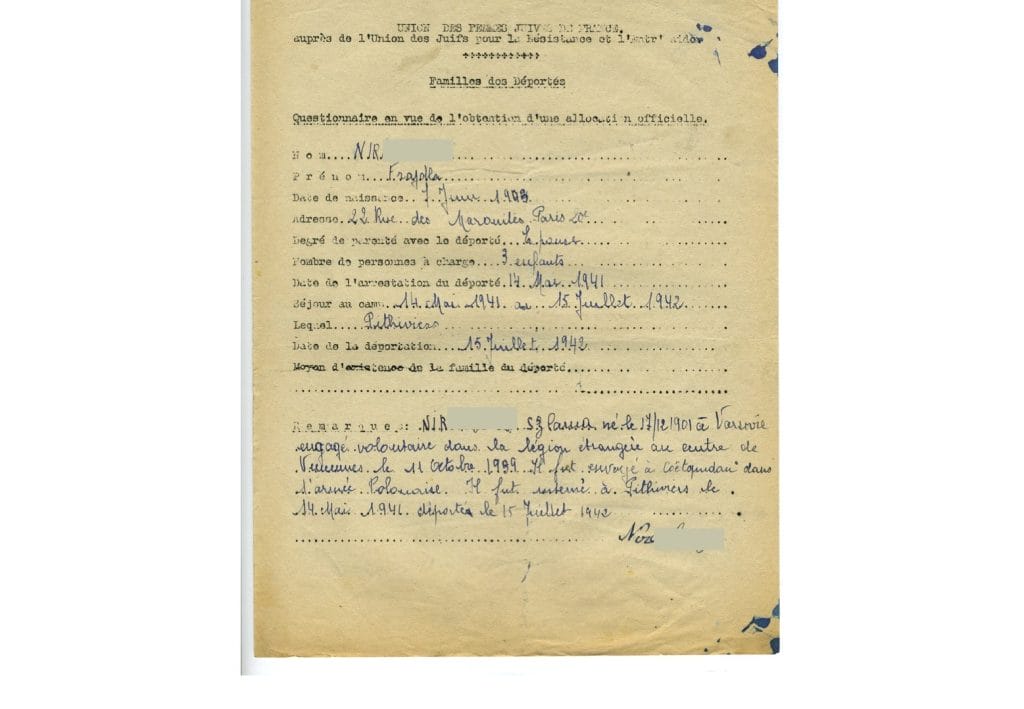 UNION DES FEMMES JUIVES DE FRANCE.
auprès de l'Union des Juifs pour la Résistance et l'Entr'aide
++++++++++++
Familles des Déportés
Questionnaire en vue de l'obtention d'une allocation officielle.
Nom.... NIR
Prénom.... Frajdla
Date de naissance.. 7 Juin 1903
Adresse. 22 Rue des Maronites Paris 20e
Degré de parenté avec le déporté... Epouse
Nombre de personnes à charge.... 3 enfants
Date de l'arrestation du déporté. 14 Mai 1941
Séjour au camp. 14 Mai 1941 au 15 Juillet 1942
Lequel.... Pithiviers
Date de la déportation.... 15 Juillet 1942
Moyen d'existence de la famille du déporté....
Remarques: NIR né le 17/12 1901 à Varsovie
engagé volontaire dans la légion étrangère au centre de
Vincennes le 11 Octobre 1939 Il fut envoyé à Coëtquidan dans
l'armée Polonaise. Il fut interné à Pithiviers le
14 Mai 1941 déporté le 15 Juillet 1942